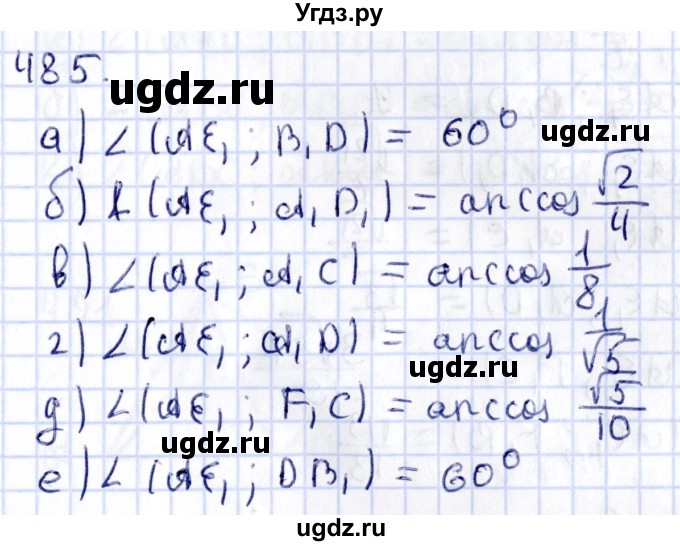 Угдз.ру
485.
ugdz.ru
а) ∠(AE₁ ; B₁D) = 60°
ugdz.ru
б) ∠(AE₁ ; A₁D₁) = arccos √2/4
в) ∠(AE₁ ; A₁C) = arccos 1/8
ugdz.ru
г) ∠(AE₁ ; A₁D) = arccos 1/√5
ugdz.ru
д) ∠(AE₁ ; F₁C) = arccos √5/10
ugdz.ru
е) ∠(AE₁ ; DB₁) = 60°
ugdz.ru
ugdz.ru